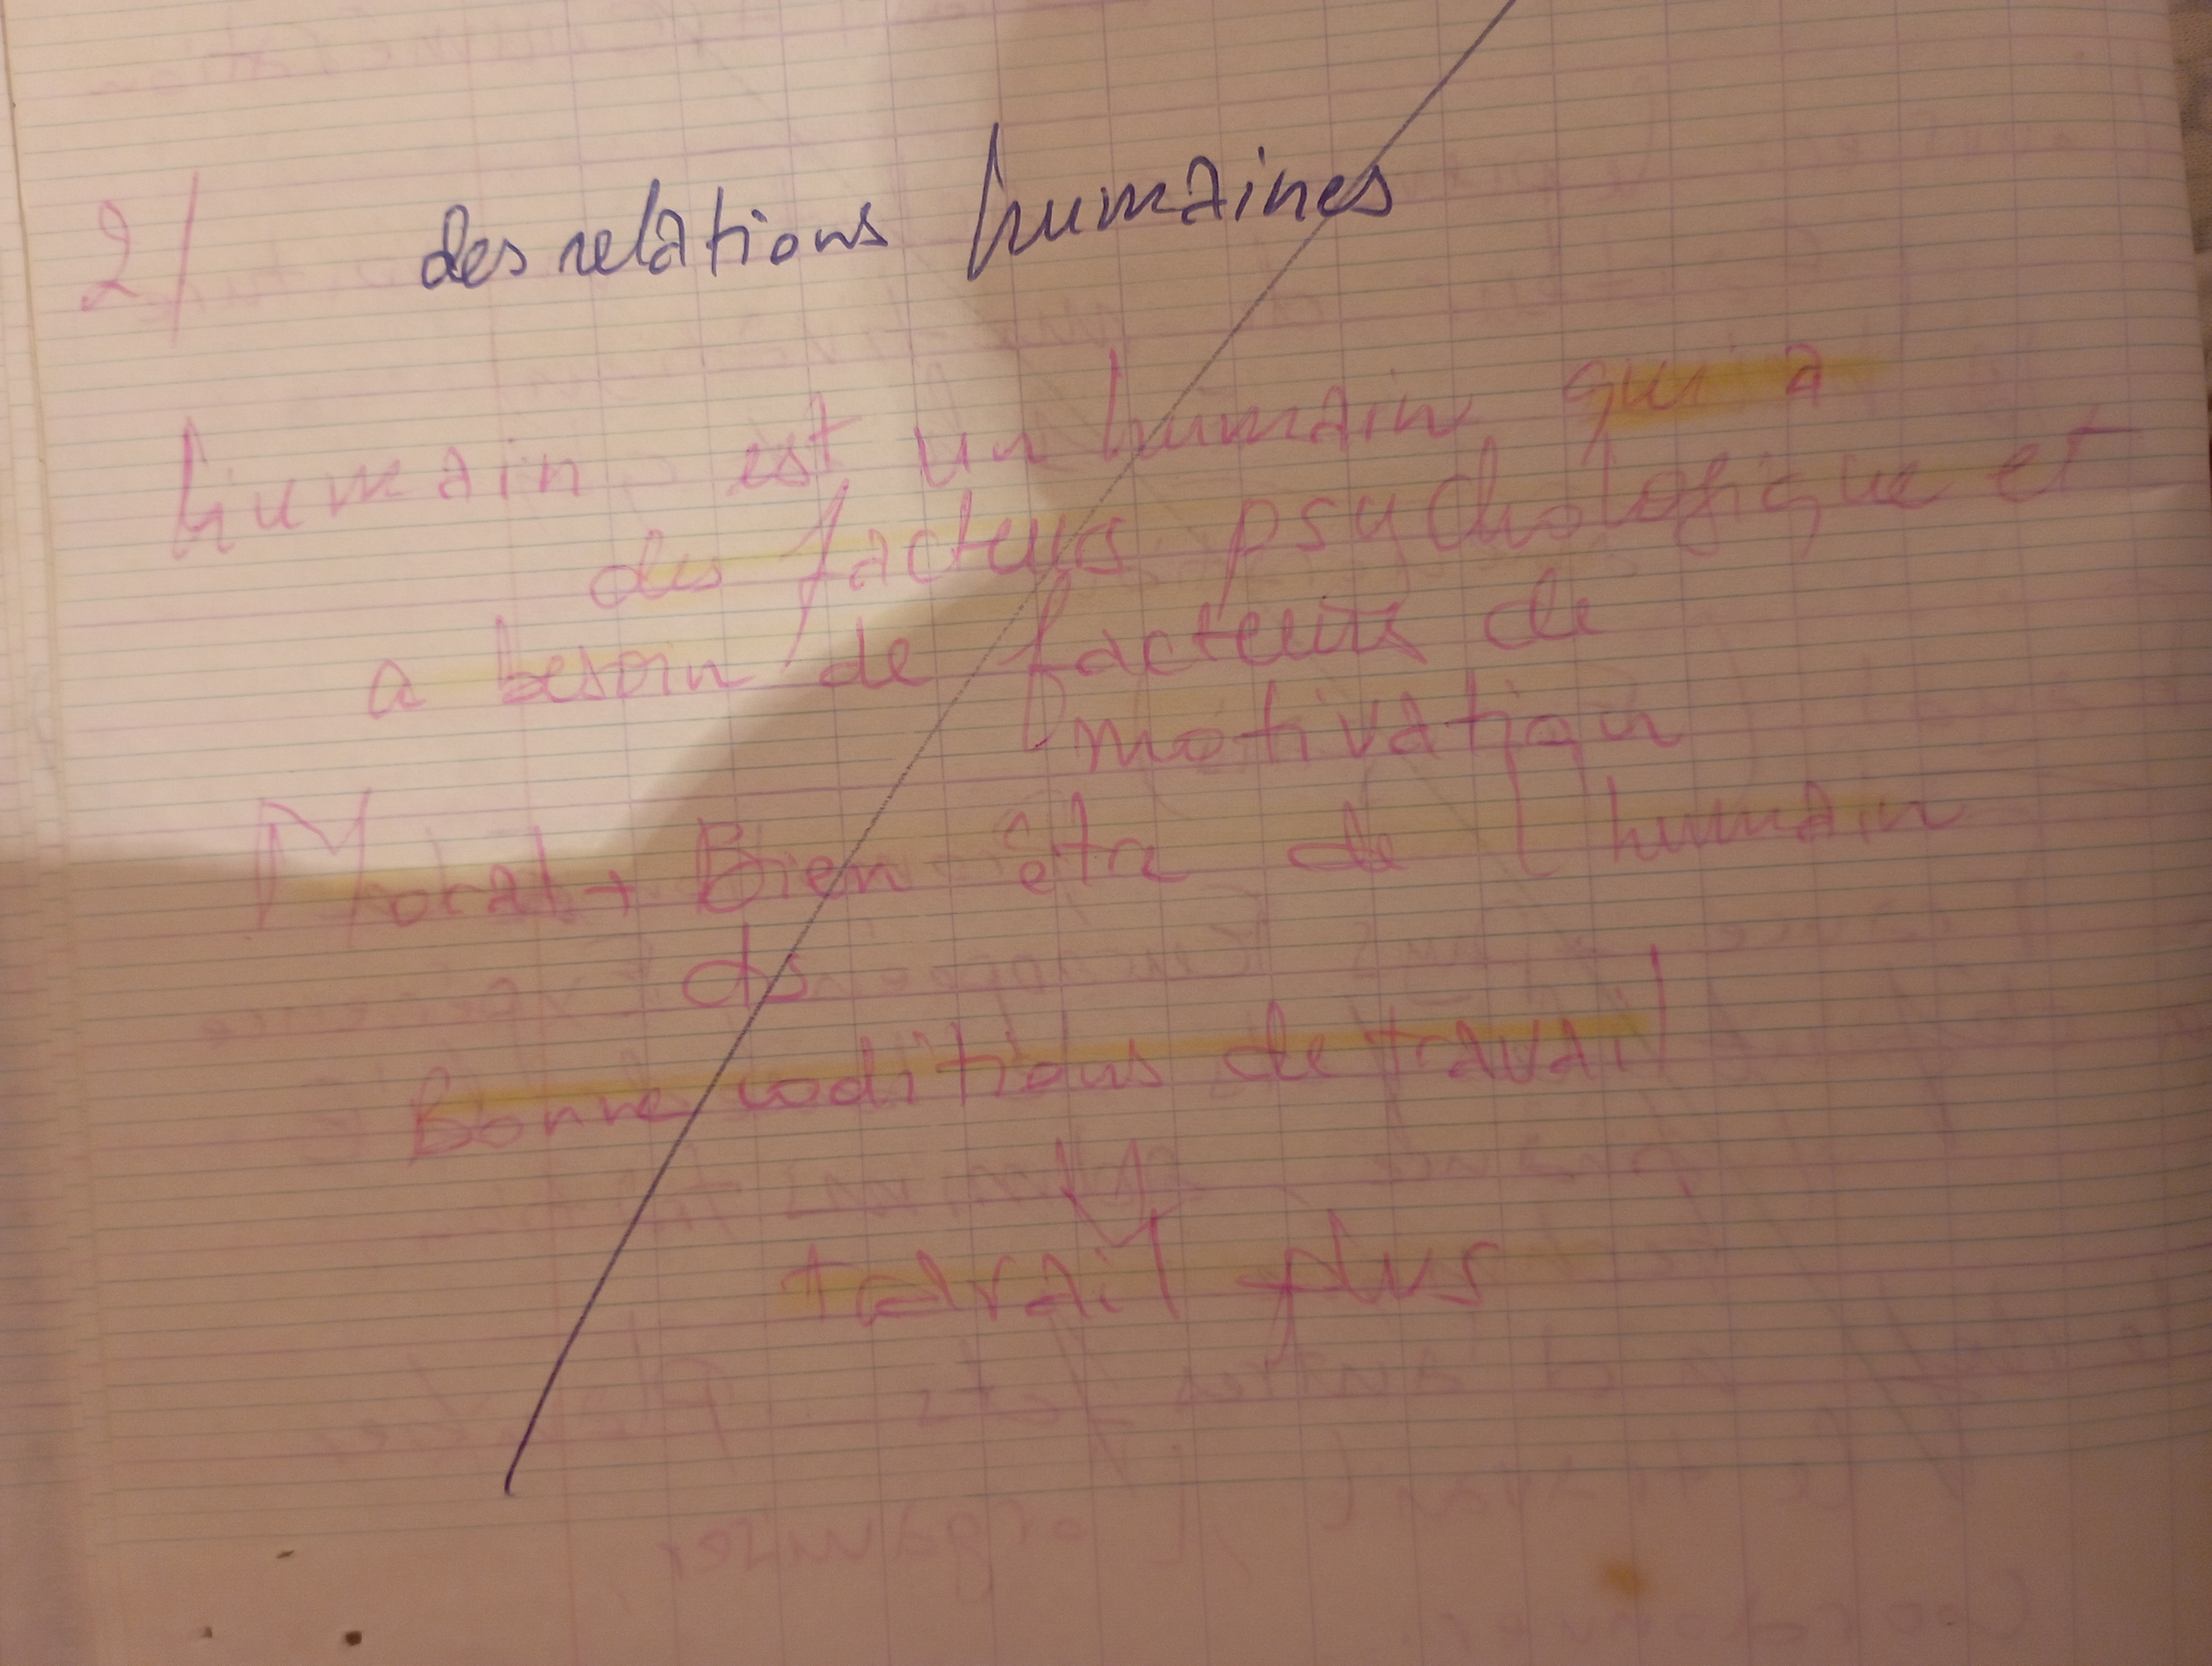 2/
des relations humaines
humain est un humain qui a
des facteurs psychologique et
a besoin de facteurs de
motivation
Moral + Bien être de l humain
ds
Bonne conditions de travail
travail plus